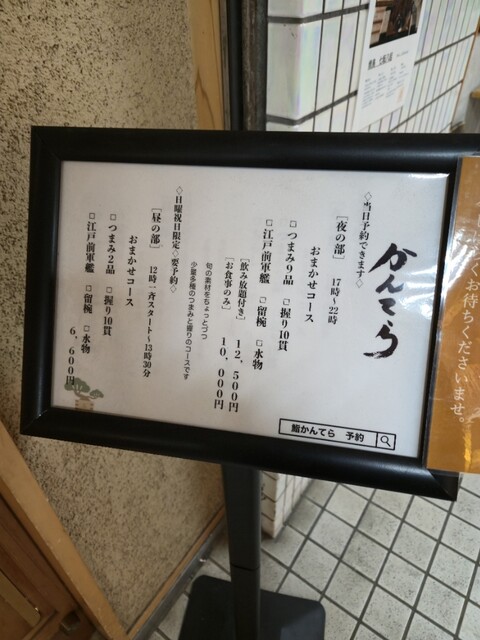 かんてら
◇当日予約できます◇
［夜の部］ 17時〜22時
おまかせコース
□つまみ9品 □握り10貫
□江戸前軍艦 □留椀 □水物
［飲み放題付き］ 12，500円
［お食事のみ］ 10，000円
旬の素材をちょっとづつ
少量多種のつまみと握りのコースです
◇日曜祝日限定◇要予約◇
［昼の部］ 12時一斉スタート〜13時30分
おまかせコース
□つまみ2品 □握り10貫
□江戸前軍艦 □留椀 □水物
6，600円
鮨かんてら 予約
くお待ちくださいませ。